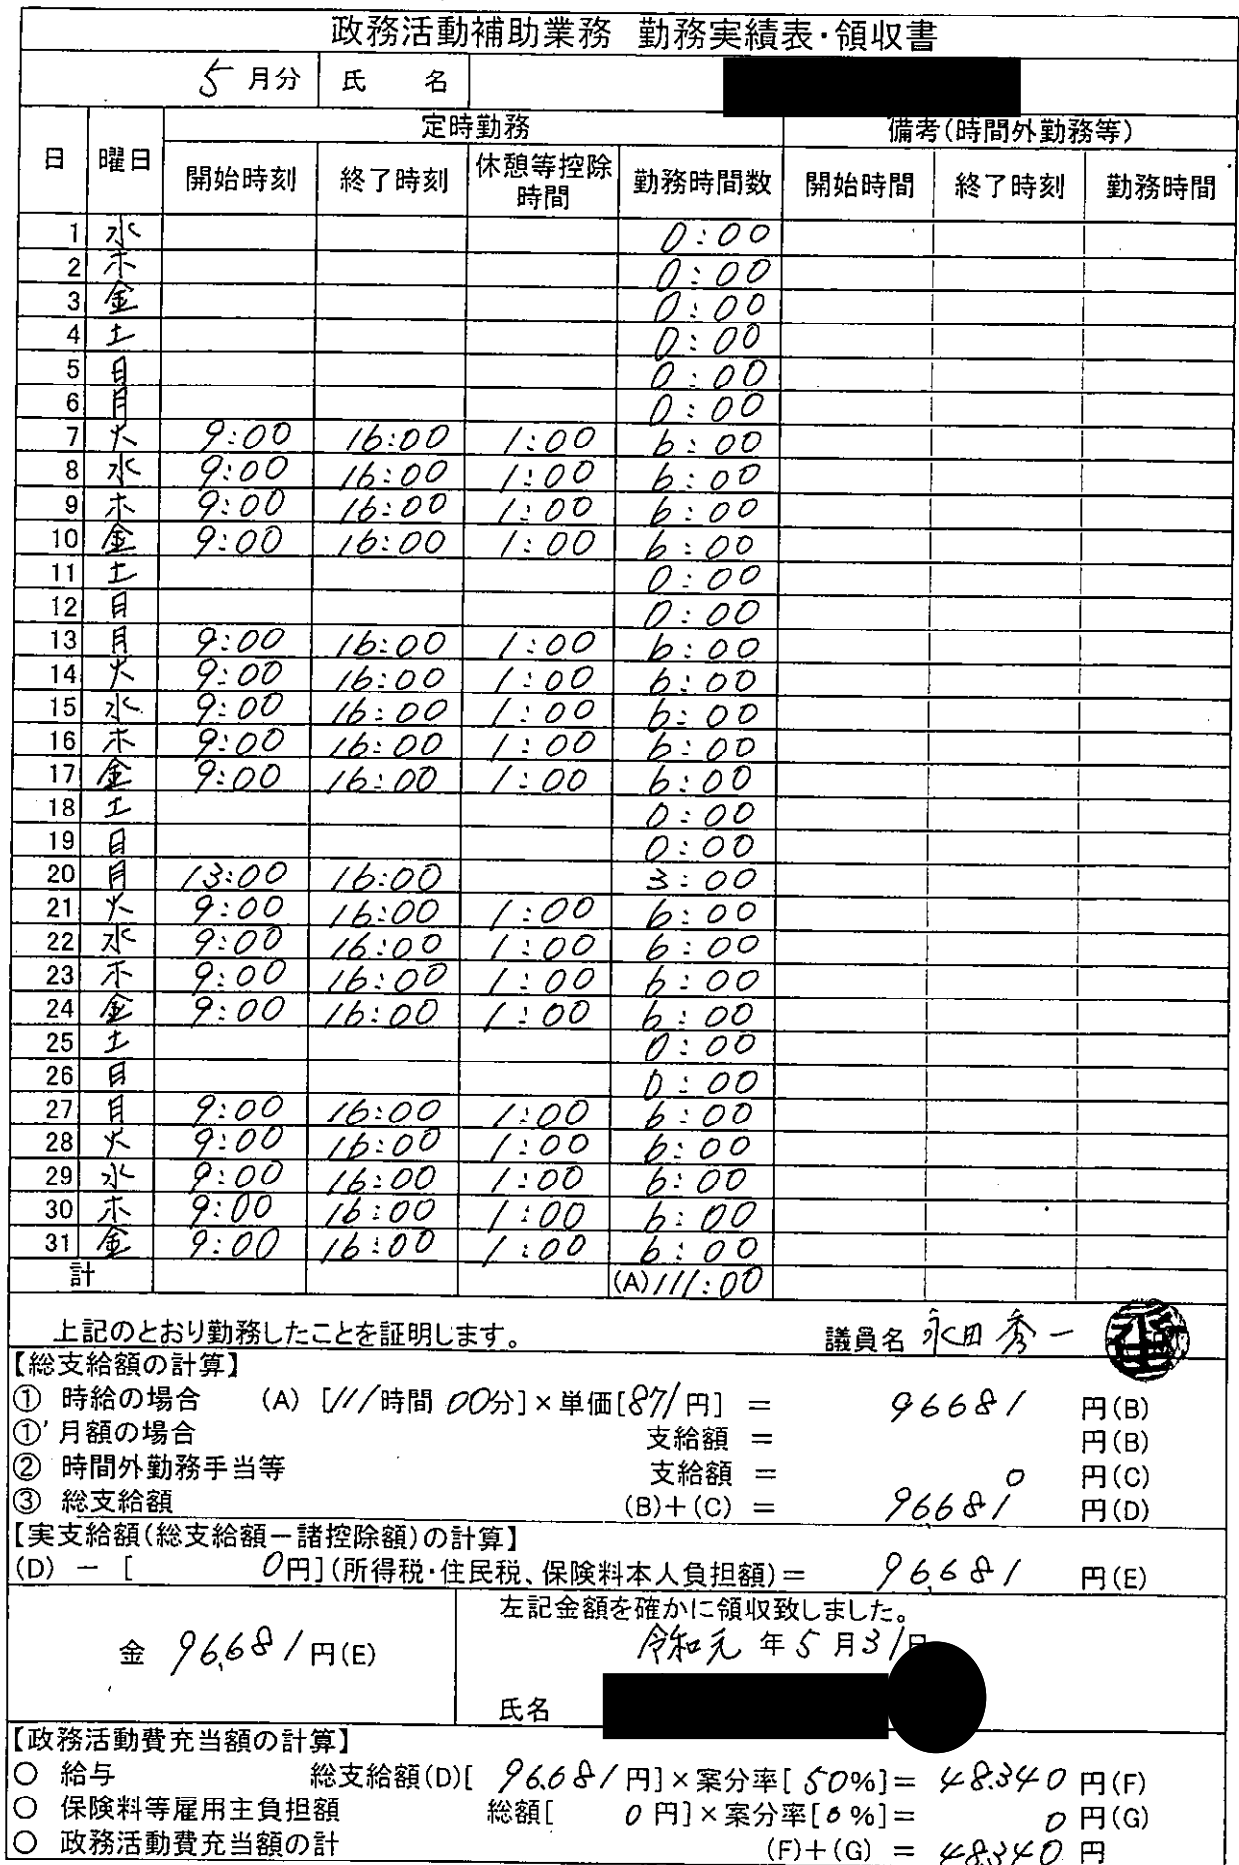 政務活動補助業務 勤務実績表・領収書
5 月分 氏 名
定時勤務 備考(時間外勤務等)
日 曜日 開始時刻 終了時刻 休憩等控除時間 勤務時間数 開始時間 終了時刻 勤務時間
1 水 0:00
2 木 0:00
3 金 0:00
4 土 0:00
5 日 0:00
6 月 0:00
7 火 9:00 16:00 1:00 6:00
8 水 9:00 16:00 1:00 6:00
9 木 9:00 16:00 1:00 6:00
10 金 9:00 16:00 1:00 6:00
11 土 0:00
12 日 0:00
13 月 9:00 16:00 1:00 6:00
14 火 9:00 16:00 1:00 6:00
15 水 9:00 16:00 1:00 6:00
16 木 9:00 16:00 1:00 6:00
17 金 9:00 16:00 1:00 6:00
18 土 0:00
19 日 0:00
20 月 13:00 16:00 3:00
21 火 9:00 16:00 1:00 6:00
22 水 9:00 16:00 1:00 6:00
23 木 9:00 16:00 1:00 6:00
24 金 9:00 16:00 1:00 6:00
25 土 0:00
26 日 0:00
27 月 9:00 16:00 1:00 6:00
28 火 9:00 16:00 1:00 6:00
29 水 9:00 16:00 1:00 6:00
30 木 9:00 16:00 1:00 6:00
31 金 9:00 16:00 1:00 6:00
計 (A)111:00
上記のとおり勤務したことを証明します。 議員名 永田 秀一
【総支給額の計算】
① 時給の場合 (A) [111時間 00分]×単価[871円] = 96681 円(B)
①' 月額の場合 支給額 = 円(B)
② 時間外勤務手当等 支給額 = 0 円(C)
③ 総支給額 (B)+(C) = 96681 円(D)
【実支給額(総支給額－諸控除額)の計算】
(D) － [ 0円](所得税・住民税、保険料本人負担額)= 96,681 円(E)
左記金額を確かに領収致しました。
金 96,681円(E) 令和元 年 5 月 31日
氏名
【政務活動費充当額の計算】
○ 給与 総支給額(D)[ 96,681円]×案分率[ 50%]= 48,340 円(F)
○ 保険料等雇用主負担額 総額[ 0 円]×案分率[0%]= 0 円(G)
○ 政務活動費充当額の計 (F)+(G) = 48,340 円